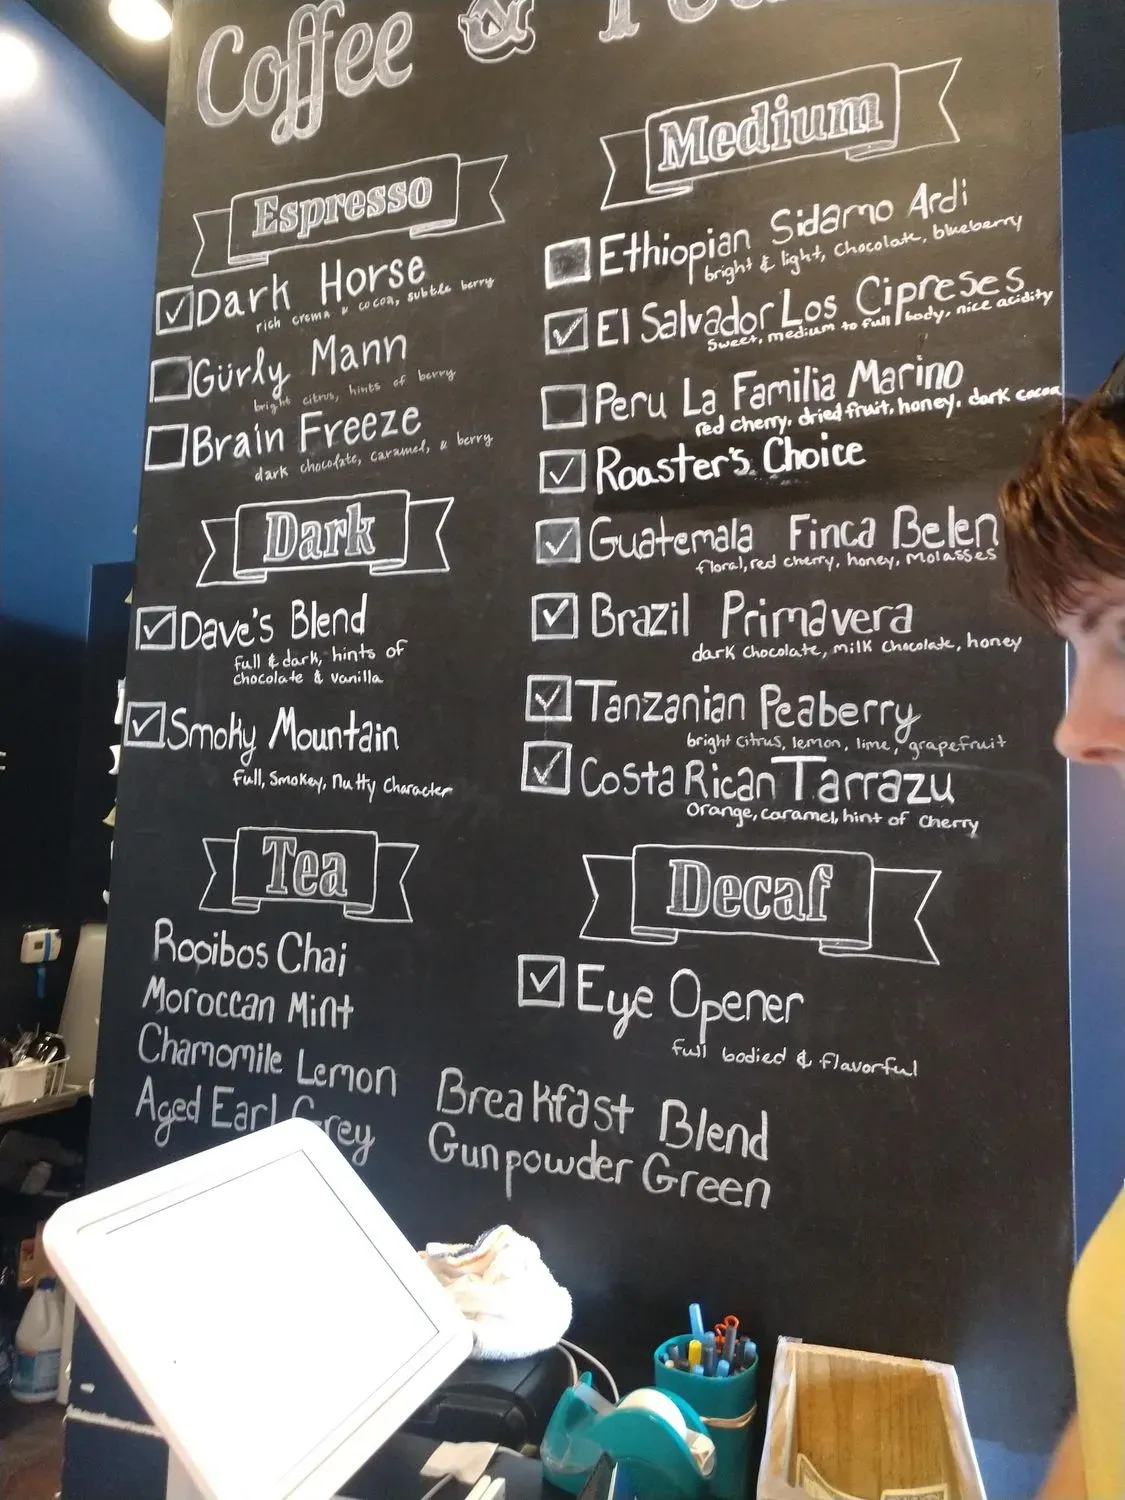 Coffee &
Espresso
Dark Horse
rich crema & cocoa, subtle berry
Gurly Mann
bright citrus, hints of berry
Brain Freeze
dark chocolate, caramel, & berry
Dark
Dave's Blend
full & dark, hints of
chocolate & vanilla
Smoky Mountain
full, Smokey, Nutty Character
Tea
Rooibos Chai
Moroccan Mint
Chamomile Lemon
Aged Earl Grey
Breakfast Blend
Gunpowder Green
Medium
Ethiopian Sidamo Ardi
bright & light, Chocolate, blueberry
El Salvador Los Cipreses
Sweet, medium to full body, nice acidity
Peru La Familia Marino
red cherry, dried fruit, honey, dark cocoa
Roaster's Choice
Guatemala Finca Belen
floral, red cherry, honey, Molasses
Brazil Primavera
dark Chocolate, milk Chocolate, honey
Tanzanian Peaberry
bright Citrus, lemon, lime, grapefruit
Costa Rican Tarrazu
Orange, caramel, hint of Cherry
Decaf
Eye Opener
full bodied & flavorful